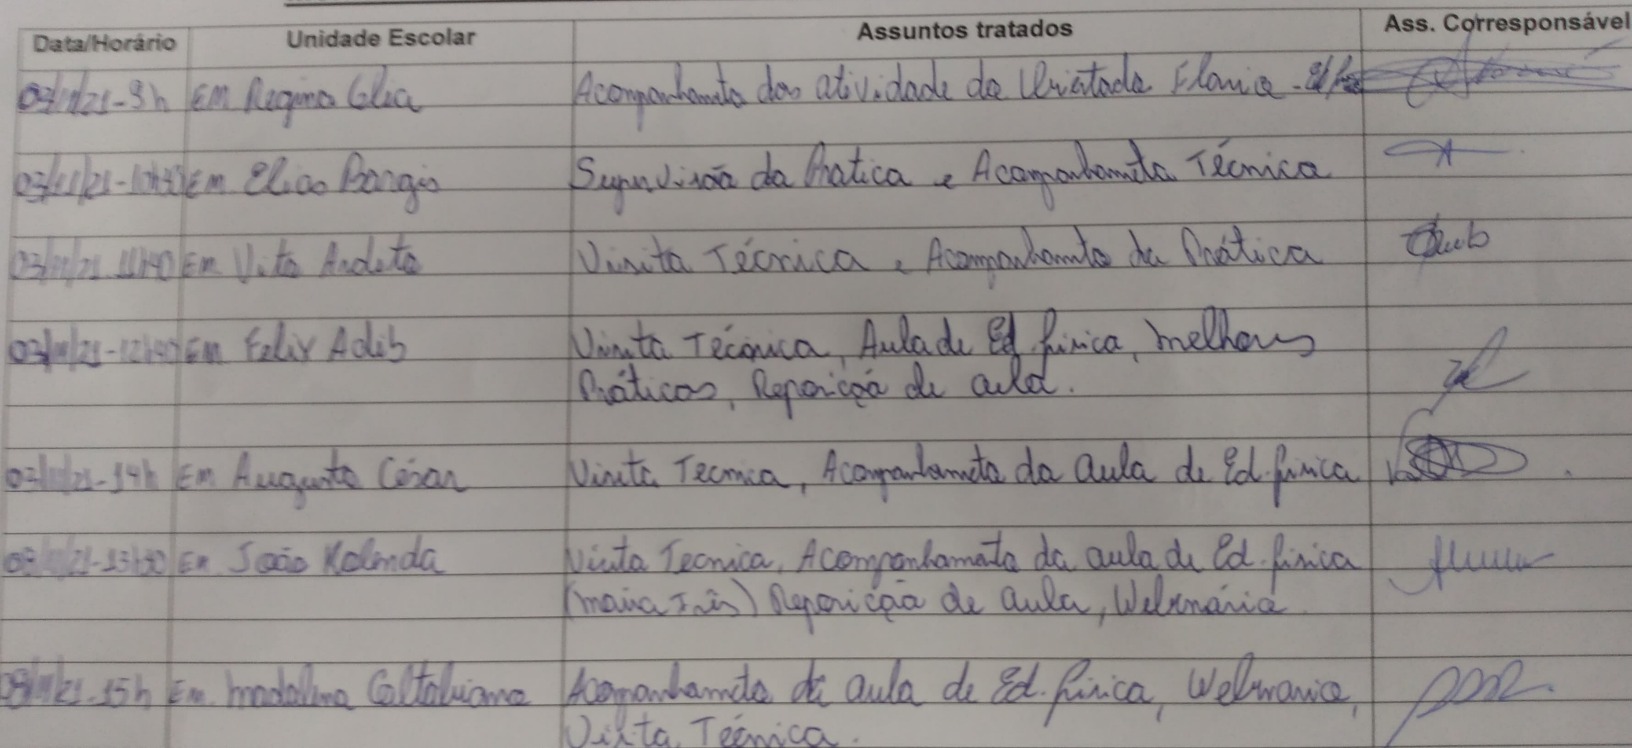 Data/Horário Unidade Escolar Assuntos tratados Ass. Corresponsável
03/11/21-9h Em Regina Célia Acompanhamento das atividade da Flavia
03/11/21-10h30 Em Elias Bargis Supervisão da Pratica e Acompanhamento Técnica
03/11/21 11h40 Em Vito Ardito Visita Técnica e Acompanhamento da Prática
03/11/21-12h40 Em Felix Adib Visita Técnica, Aula de Ed física, melhores
Práticas, Reposição de aula.
03/11/21-14h Em Augusto César Visita Tecnica, Acompanhamento da aula de Ed. física
08/11/21-13h30 Em João Kolenda Visita Tecnica, Acompanhamento da aula de Ed. física
(maria Inês) Reposição de aula,
08/11/21-15h Em. madalena Caltabiano Acompanhamento da aula de Ed. física,
Visita Técnica.